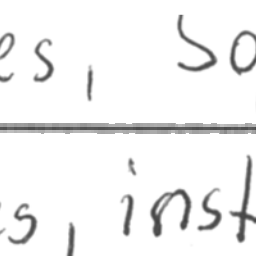 es, So
s, inst